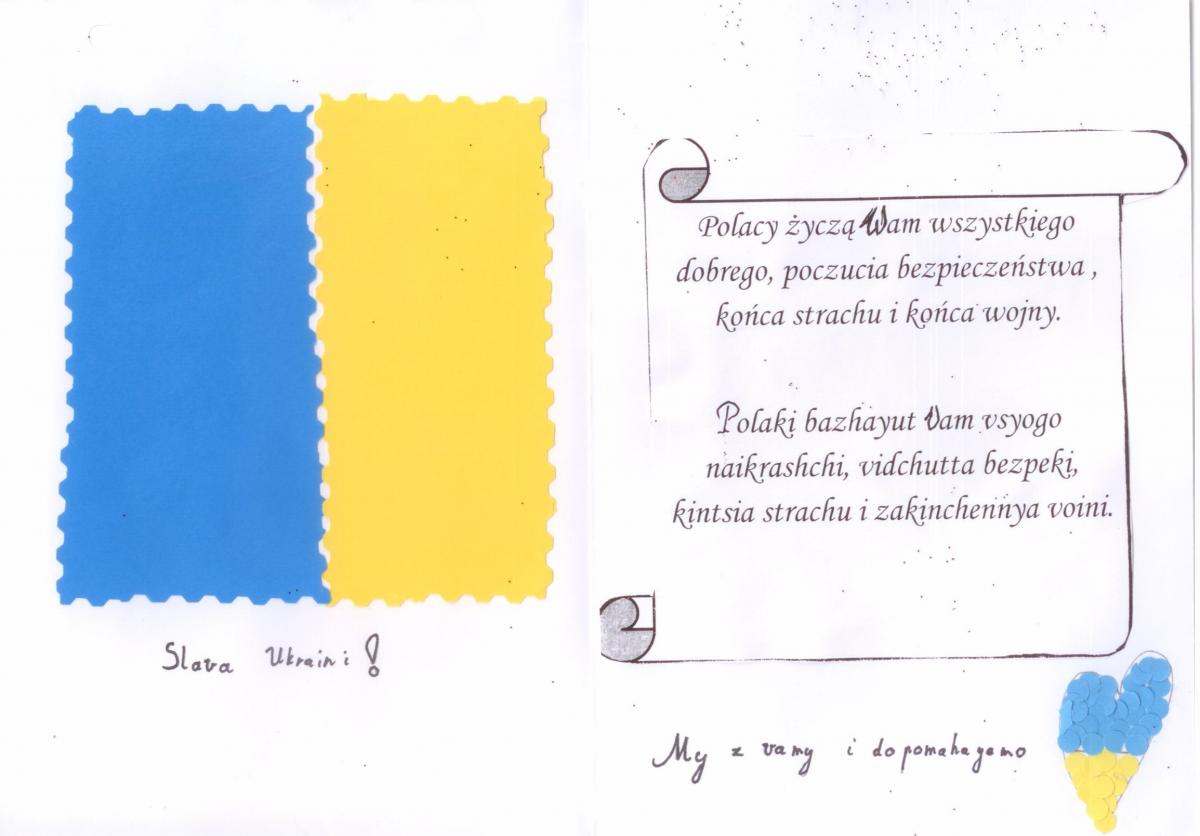 Slava Ukraini!
Polacy życzą Wam wszystkiego
dobrego, poczucia bezpieczeństwa ,
końca strachu i końca wojny.
Polaki bazhayut Vam vsyogo
naikrashchi, vidchutta bezpeki,
kintsia strachu i zakinchennya voini.
My z vamy i dopomahagemo